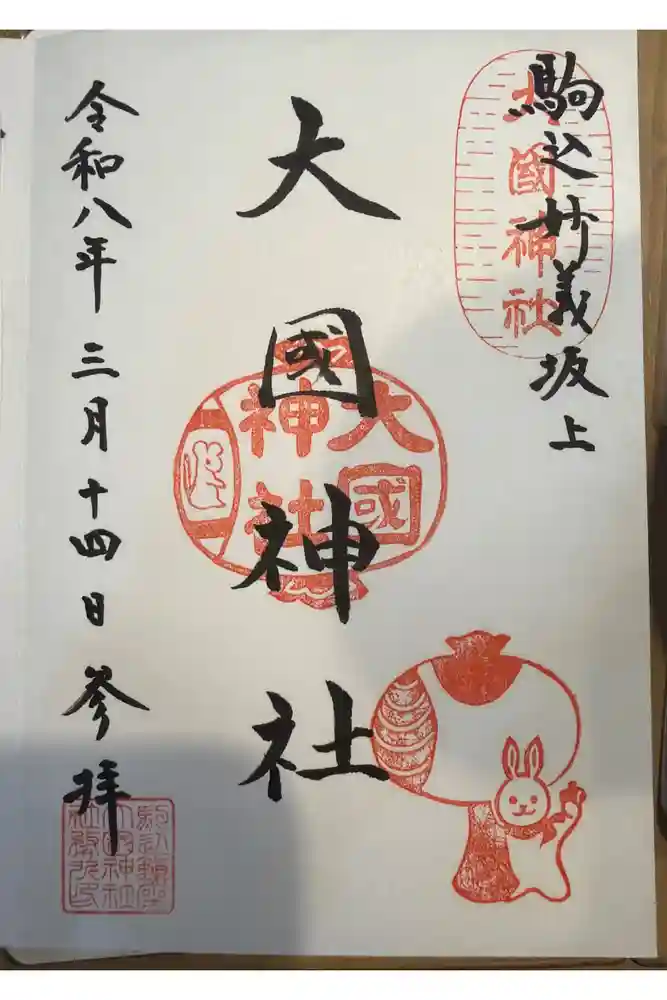 駒込妙義坂上
大國神社
大國神社
大國神社
令和八年 三月十四日 参拝